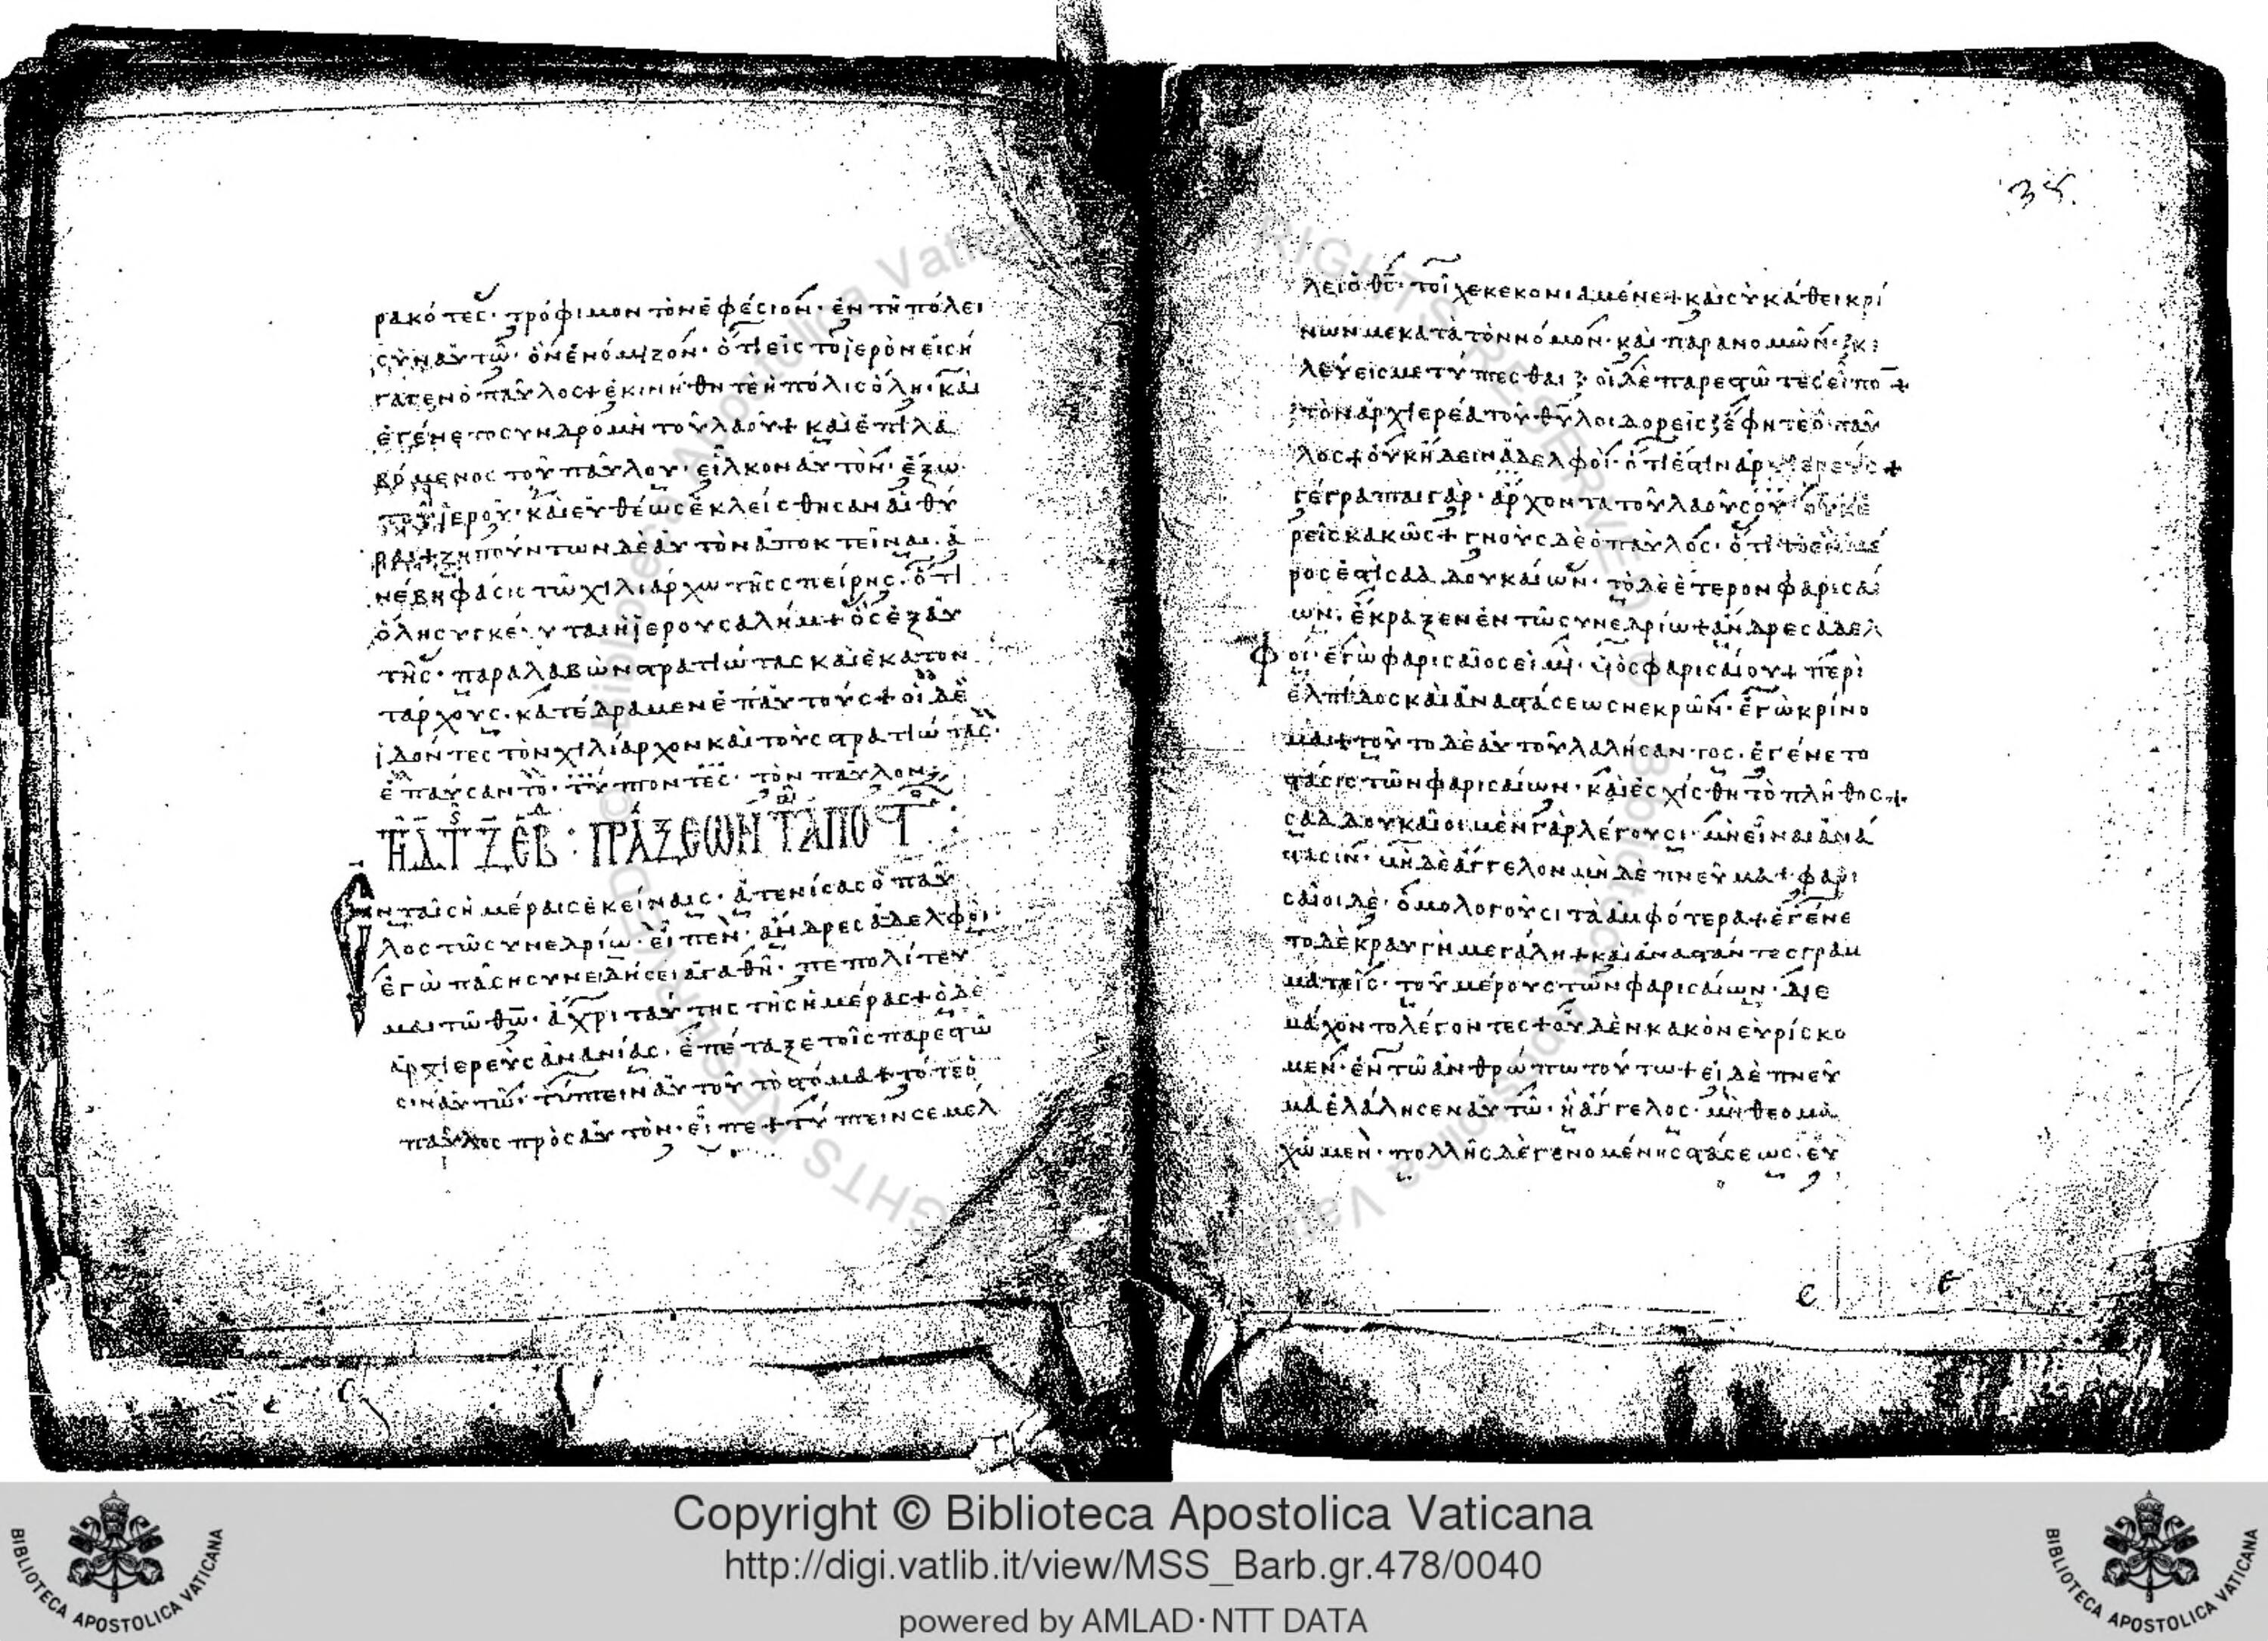 ρακότες· τρόφιμον τὸν ἐφέσιον· ἐν τῆ πόλει
σὺν αὐτῶ· ὃν ἐνόμιζον· ὅτι εἰς τὸ ἱερὸν εἰσή
γαγεν ὁ παῦλος + ἐκινήθη τὲ ἡ πόλις ὅλη· καὶ
ἐγένετο συνδρομὴ τοῦ λαοῦ + καὶ ἐπιλα
βόμενος τοῦ παύλου· εἷλκον αὐτὸν· ἔξω
τοῦ ἱεροῦ· καὶ εὐθέως ἐκλείσθησαν αἱ θύ
ραι + ζητούντων δὲ αὐτὸν ἀποκτεῖναι· ἀ
νέβη φάσις τῶ χιλιάρχω τῆς σπείρης· ὅτι
ὅλη συγκέχυται ἡ ἱερουσαλήμ + ὃς ἐξαυ
τῆς· παραλαβὼν στρατιώτας καὶ ἑκατον
τάρχους· κατέδραμεν ἐπ' αὐτούς + οἱ δὲ
ἰδόντες τὸν χιλίαρχον καὶ τοὺς στρατιώτας·
ἐπαύσαντο· τύπτοντες· τὸν παῦλον
ΠΡΑΞΕΩΝ Τ ΑΠΟΣΤ
Ἐν ταῖς ἡμέραις ἐκείναις· ἀτενίσας ὁ παῦ
λος τῶ συνεδρίω· εἶπεν· ἄνδρες ἀδελφοί·
ἐγὼ πάση συνειδήσει ἀγαθῆ· πεπολίτευ
μαι τῶ θῶ· ἄχρι ταύτης τῆς ἡμέρας + ὁ δὲ
ἀρχιερεὺς ἀνανίας· ἐπέταξε τοῖς παρεστῶ
σιν αὐτῶ· τύπτειν αὐτοῦ τὸ στόμα + τότε ὁ
παῦλος πρὸς αὐτὸν· εἶπε + τύπτειν σε μέλ
λει ὁ θς· τοῖχε κεκονιαμένε + καὶ σὺ κάθει κρί
νων με κατὰ τὸν νόμον· καὶ παρανομῶν· κε
λεύεις με τύπτεσθαι οἱ δὲ παρεστῶτες εἶπον +
τὸν ἀρχιερέα τοῦ θυ λοιδορεῖς ἔφη τε ὁ παῦ
λος + οὐκ ἤδειν ἀδελφοί· ὅτι ἐστὶν ἀρχιερεύς +
γέγραπται γὰρ· ἄρχοντα τοῦ λαοῦ σου οὐκ ἐ
ρεῖς κακῶς + γνοὺς δὲ ὁ παῦλος· ὅτι τὸ ἓν μέ
ρος ἐστὶ σαδδουκαίων· τὸ δὲ ἕτερον φαρισαί
ων· ἔκραξεν ἐν τῶ συνεδρίω + ἄνδρες ἀδελ
φοί· ἐγὼ φαρισαῖος εἰμὶ· υἱὸς φαρισαίου + περὶ
ἐλπίδος καὶ ἀναστάσεως νεκρῶν· ἐγὼ κρίνο
μαι + τοῦτο δὲ αὐτοῦ λαλήσαντος· ἐγένετο
στάσις τῶν φαρισαίων· καὶ ἐσχίσθη τὸ πλῆθος +
σαδδουκαῖοι μὲν γὰρ λέγουσι μὴ εἶναι ἀνά
στασιν· μηδὲ ἄγγελον μὴ δὲ πνεῦμα + φαρι
σαῖοι δὲ· ὁμολογοῦσι τὰ ἀμφότερα + ἐγένε
το δὲ κραυγὴ μεγάλη + καὶ ἀναστάντες γραμ
ματεῖς· τοῦ μέρους τῶν φαρισαίων· διε
μάχοντο λέγοντες + οὐδὲν κακὸν εὑρίσκο
μεν· ἐν τῶ ἀνθρώπω τούτω + εἰ δὲ πνεῦ
μα ἐλάλησεν αὐτῶ· ἢ ἄγγελος· μὴ θεομα
χῶμεν· πολλῆς δὲ γενομένης στάσεως· εὐ
Copyright © Biblioteca Apostolica Vaticana
http://digi.vatlib.it/view/MSS_Barb.gr.478/0040
powered by AMLAD·NTT DATA